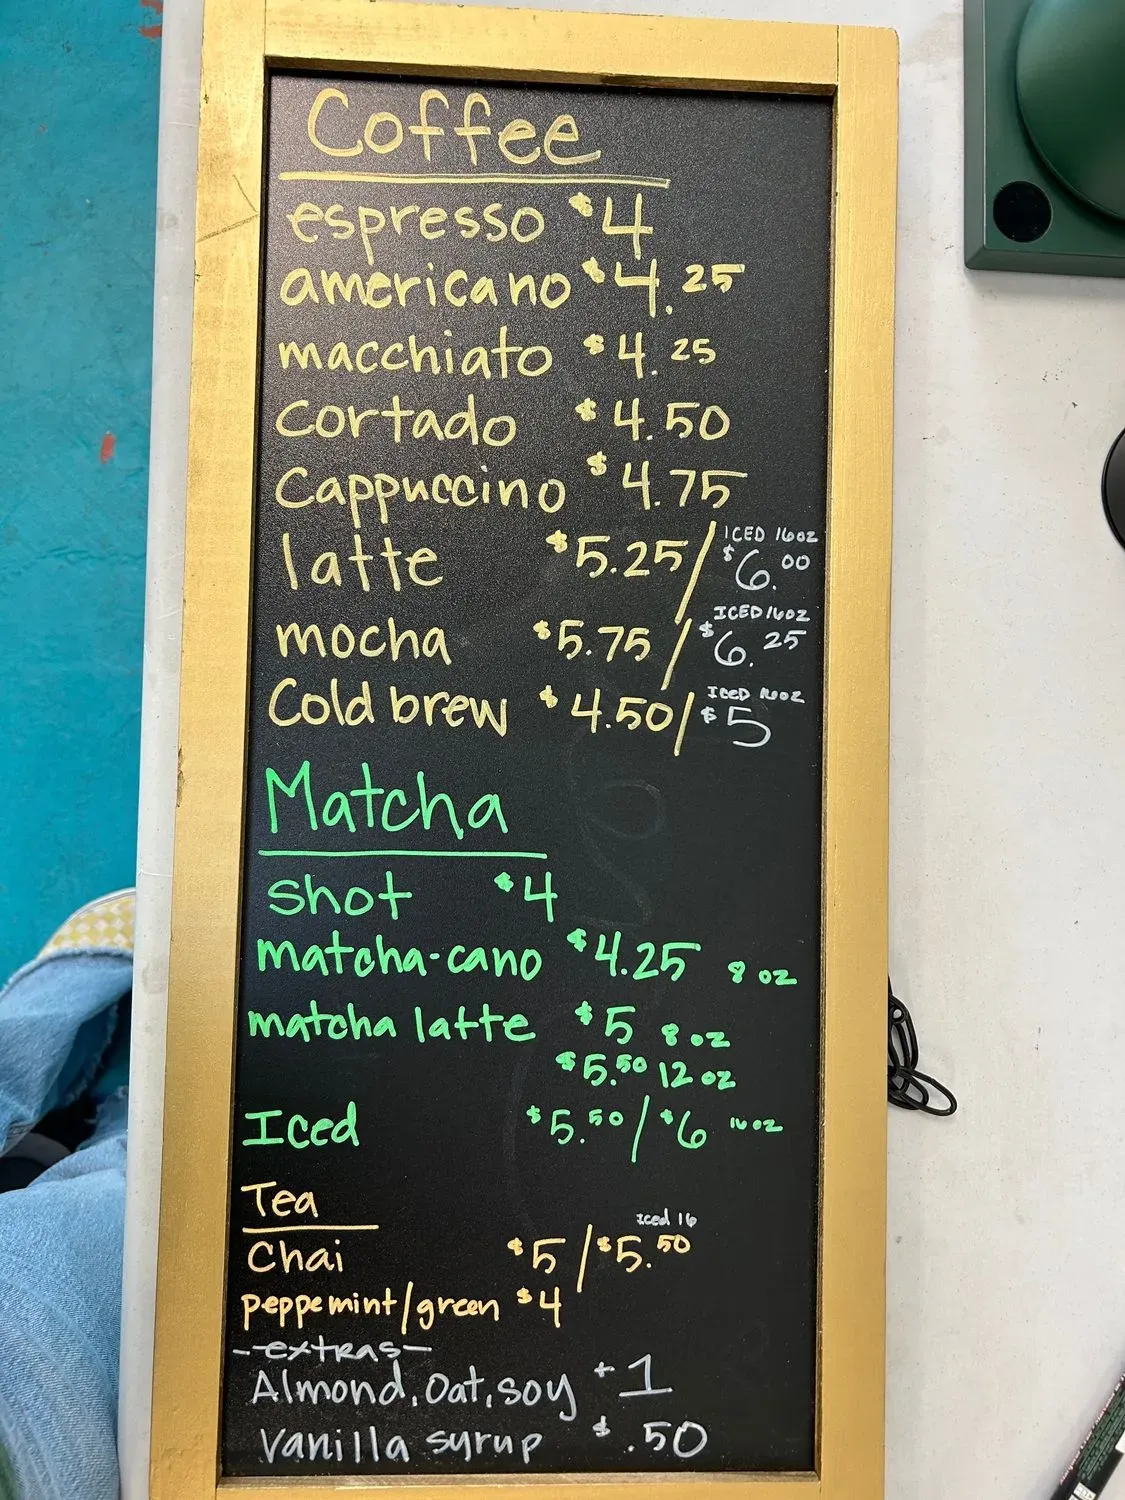 Coffee
espresso $4
americano $4.25
macchiato $4.25
cortado $4.50
Cappuccino $4.75
latte $5.25/ ICED 16oz $6.00
mocha $5.75/ ICED 16oz $6.25
Cold brew $4.50/ Iced 16oz $5
Matcha
shot $4
matcha-cano $4.25 8 oz
matcha latte $5 8 oz
$5.50 12 oz
Iced $5.50/$6 16oz
Tea
Chai $5/ Iced 16 $5.50
peppemint/green $4
-extras-
Almond, Oat, soy +1
Vanilla syrup $.50